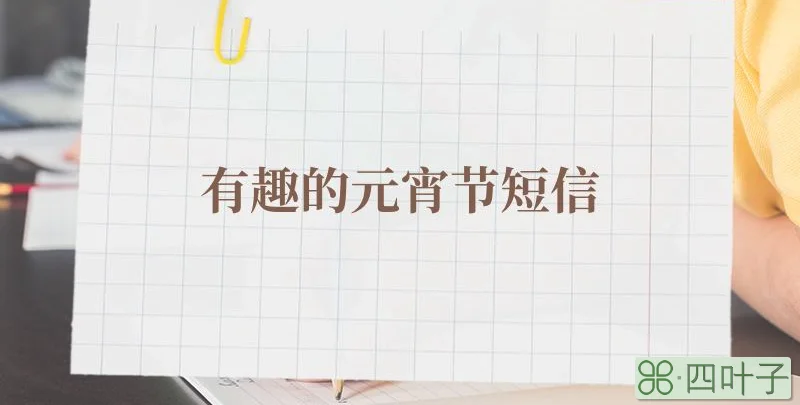 有趣的元宵节短信
四叶子